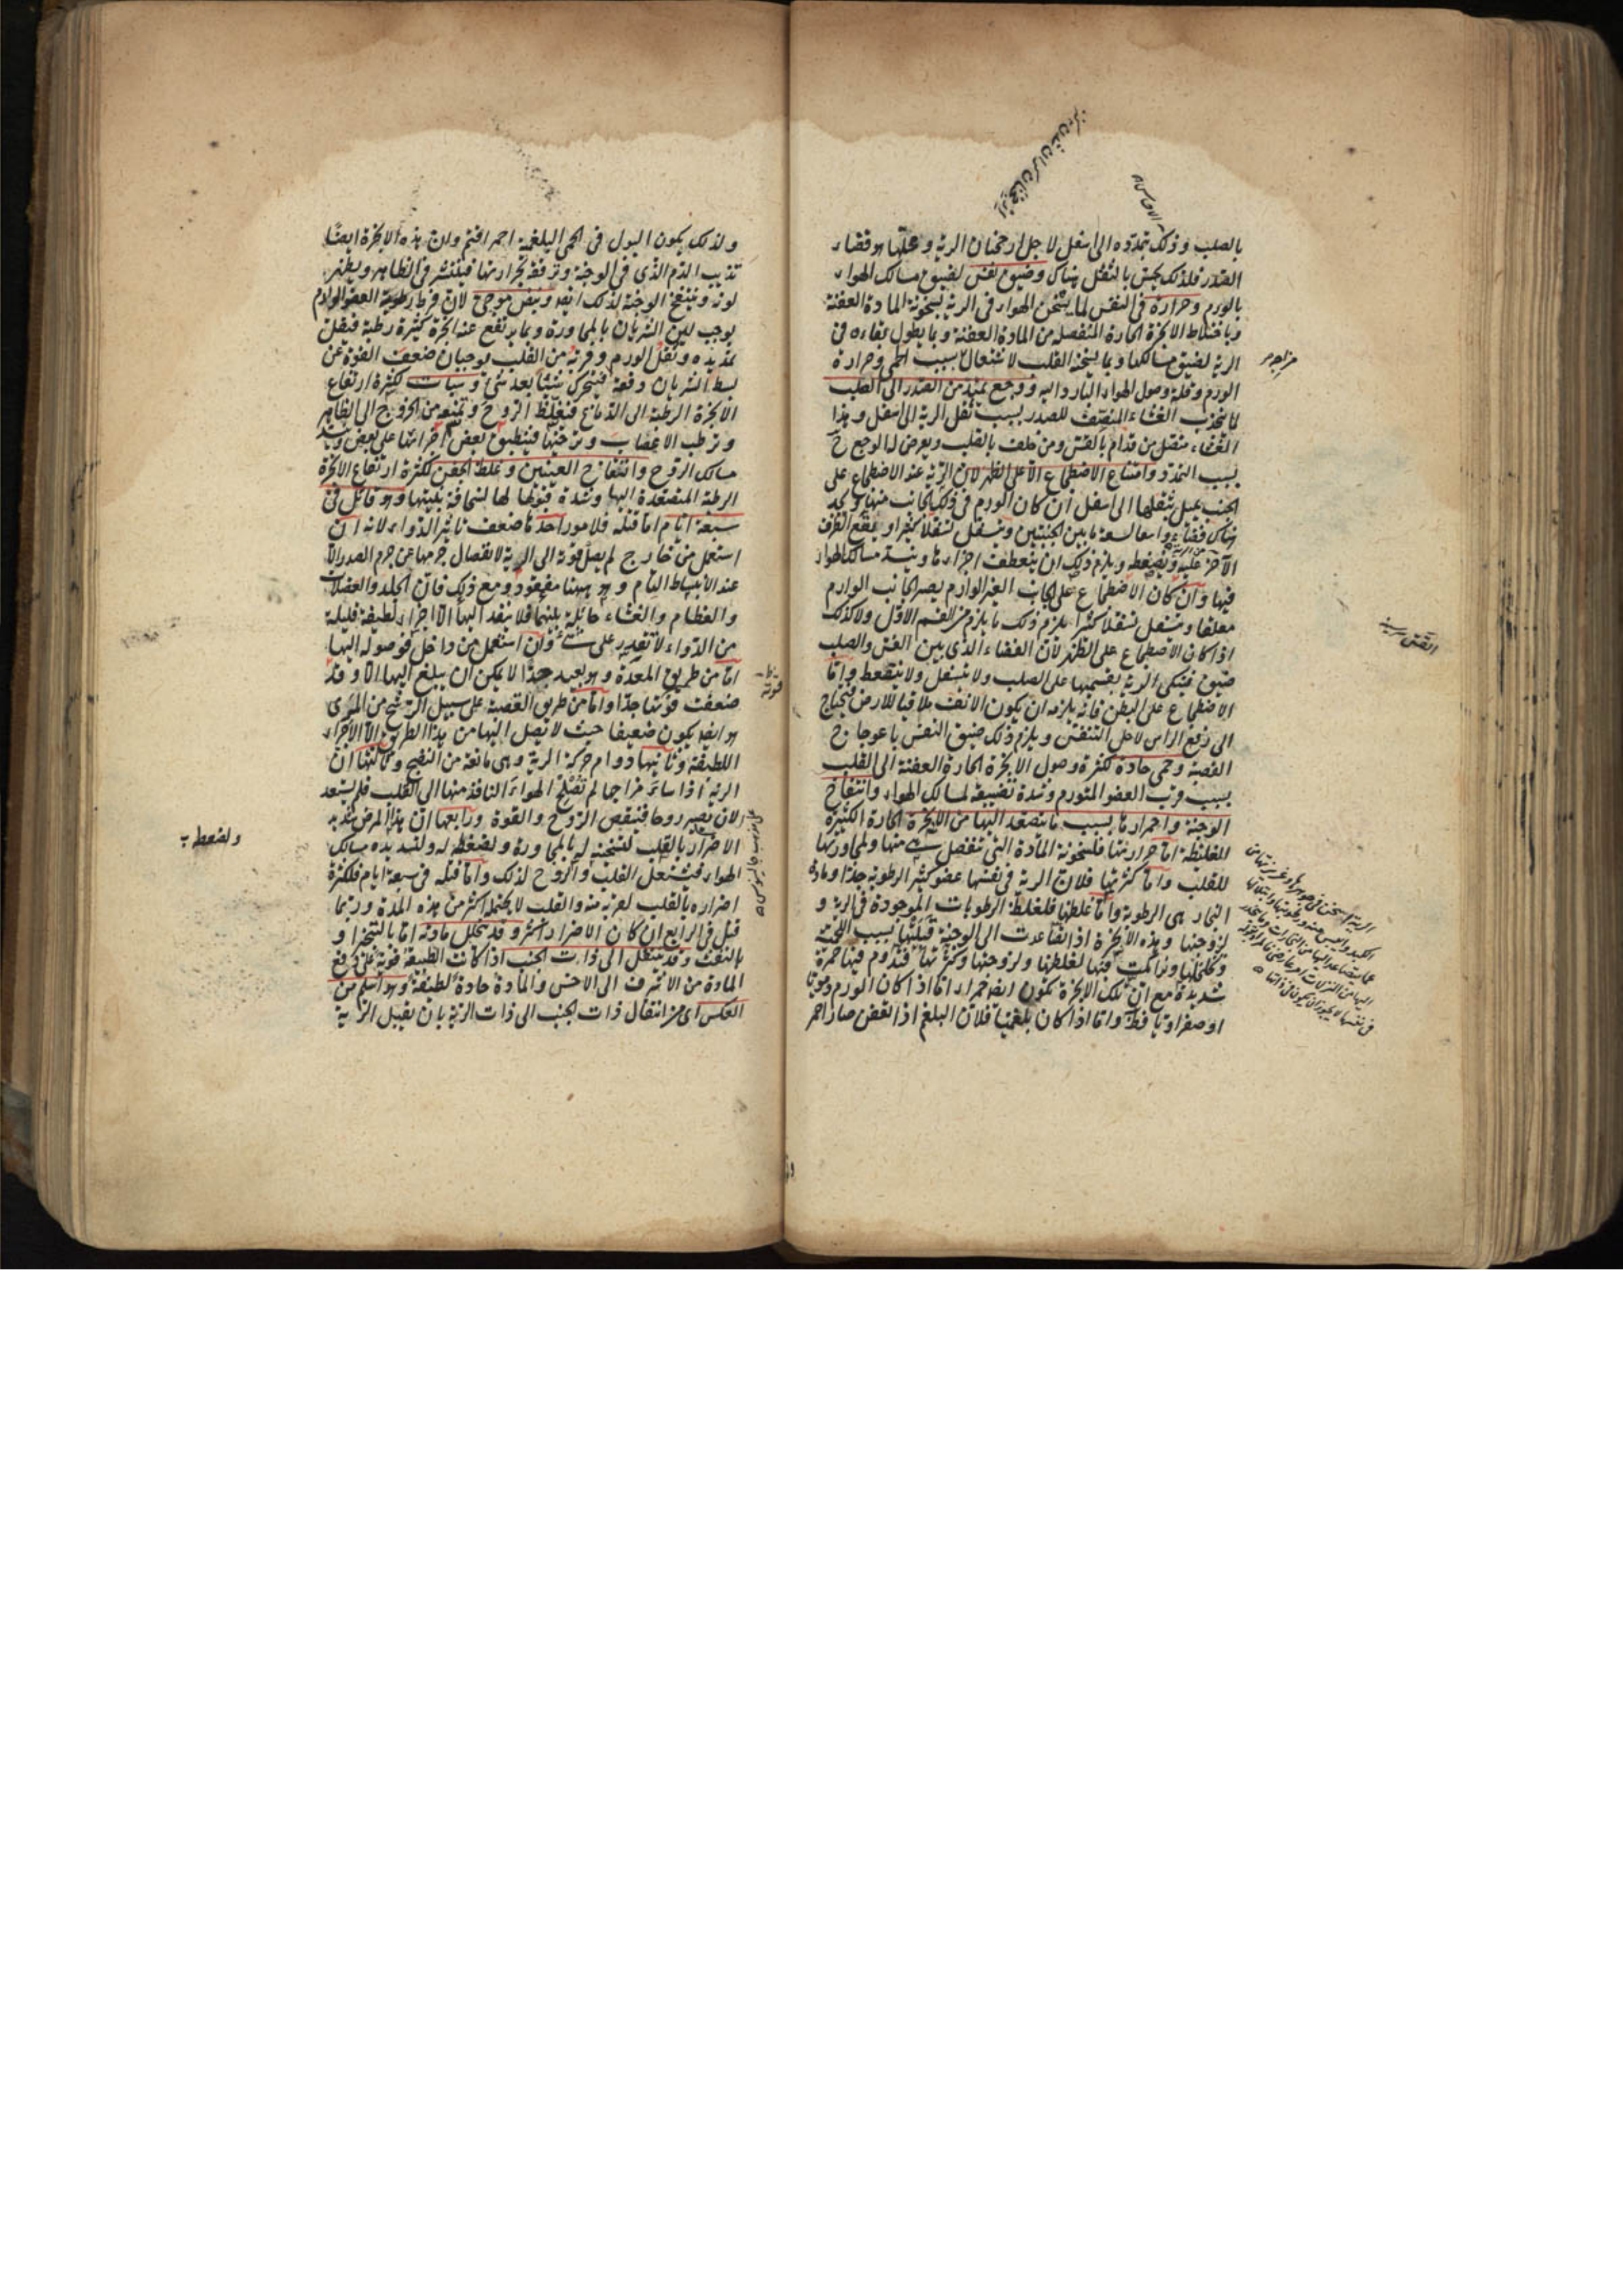 بالصلب وذلك بتمدده الى اسفل لاجل ارجحنان الرية وعلتها هو فضاء
الصدر فلذلك يحس بالثقل هناك وضيق نفس لضيق مسالك الهواء
بالورم وحرارة في النفس لما يتسخن الهواء في الرية بسخونة المادة العفنة
وباختلاط الابخرة الحارة المنفصله من المادة العفنة وبما يطول بقاءه في
الرية لضيق مسالكها وبما يسخنه القلب لاشتعاله بسبب الحمى وحرارة
الورم وقلة وصول الهواء البارد اليه ووجع يمتد من الصدر الى الصلب
لما ينجذب الغشاء المنصف للصدر بسبب ثقل الرية الى اسفل وهذا
الغشاء متصل من قدام بالقس ومن خلف بالقلب ويعرض له الوجع ح
بسبب التمدد وامتناع الاضطجاع الا على الظهر لان الرية عند الاضطجاع على
الجنب يميل بثقلها الى اسفل ان كان الورم في ذلك الجانب منها ويجد
هناك فضاء واسعا لسعة ما بين الجنبتين ويتسفل تسفلا كثيرا ويقع الطرف
الآخر عليه ويضغطه ويلزم ذلك ان ينعطف اجزاءها وينسد مسالك الهواء
فيها وان كان الاضطجاع على الجانب الغير الوارم يصير الجانب الوارم
معلقا ويتسفل تسفلا كثيرا يلزم ذلك ما يلزم من القسم الاول ولا كذلك
اذا كان الاضطجاع على الظهر لان الفضاء الذي بين القس والصلب
ضيق فيتكى الرية بقسميها على الصلب ولا يتسفل ولا ينضغط واما
الاضطجاع على البطن فانه يلزمه ان يكون الانف ملاقيا للارض فيحتاج
الى رفع الراس لاجل التنفس ويلزم ذلك ضيق النفس باعوجاج
القصبة وحمى حادة لكثرة وصول الابخرة الحارة العفنة الى القلب
بسبب قرب العضو المتورم وشدة تضييقه لمسالك الهواء وانتفاخ
الوجنة واحمرارها بسبب ما يتصعد اليها من الابخرة الحارة الكثيرة
الغليظة اما حرارتها فلسخونة المادة التي تنفصل منها ولمجاورتها
للقلب واما كثرتها فلان الرية في نفسها عضو كثير الرطوبة جدا ومادة
البخار هي الرطوبة واما غلظها فلغلظ الرطوبات الموجودة في الرية و
لزوجتها وهذه الابخرة اذا تصاعدت الى الوجنة قبلتها بسبب اللحمية
وتخلخلها وتراكمت فيها لغلظها ولزوجتها وكثرتها فتدوم فيها حمرة
شديدة مع ان تلك الابخرة تكون ايضا حمراء اما اذا كان الورم دمويا
او صفراويا فظ واما اذا كان بلغميا فلان البلغم اذا تعفن صار احمر
القس سينه
ولذلك يكون البول في الحمى البلغمية احمر اقتم وان هذه الابخرة ايضا
تذيب الدم الذي في الوجنة وترققه بحرارتها فينتشر في الظاهر ويظهر
لونه وينتفخ الوجنة لذلك ايضا ونبض موجي لان فرط رطوبة العضو الوارم
يوجب لين الشريان بالمجاورة وبما يرتفع عنه ابخرة كثيرة رطبة فيقل
تمديده وثقل الورم وقربه من القلب يوجبان ضعف القوة عن
بسط الشريان دفعة فيتحرك شيئا بعد شئ وسبات لكثرة ارتفاع
الابخرة الرطبة الى الدماغ فتغلظ الروح وتمنعه من الخروج الى الظاهر
وترطب الاعصاب وترخيها فينطبق بعض اجزائها على بعض وينسد
مسالك الروح وانتفاخ العينين وغلظ الجفن لكثرة ارتفاع الابخرة
الرطبة المتصعدة اليها وشدة قبولها لها لسخافة بنيتها وهو قاتل في
سبعة ايام اما قتله فلامور احدها ضعف تاثير الدواء لانه ان
استعمل من خارج لم يصل قوته الى الرية لانفصال جرمها عن جرم الصدر الا
عند الانبساط التام وهو ههنا مفقود ومع ذلك فان الجلد والعضلات
والعظام والغشاء حائلة بينهما فلا ينفذ اليها الا اجزاء لطيفة قليلة
من الدواء لا تقدر على شئ وان استعمل من داخل فوصوله اليها
اما من طريق المعدة وهو بعيد جدا لا يمكن ان يبلغ اليها الا وقد
ضعفت قوتها جدا واما من طريق القصبة على سبيل الترشح من المرى
هو ايضا يكون ضعيفا حيث لا يصل اليها من هذا الطريق الا الاجزاء
اللطيفة وثانيها دوام حركة الرية وهي مانعة من النضج وثالثها ان
الرية اذا ساء مزاجها لم تصلح الهواء النافذ منها الى القلب فلم يستعد
لان يصير روحا فينقص الروح والقوة ورابعها ان هذا المرض شديد
الاضرار بالقلب لتسخينه له بالمجاورة ولضغطه له ولتسديده مسالك
الهواء فيشتعل القلب والروح لذلك واما قتله في سبعة ايام فلكثرة
اضراره بالقلب لقربه منه والقلب لا يحتمله اكثر من هذه المدة وربما
قتل في الرابع ان كان الاضرار اكثر وقد يتحلل مادته اما بالتبخر او
بالنفث وقد ينتقل الى ذات الجنب اذا كانت الطبيعة قوية على دفع
المادة من الاشرف الى الاخس والمادة حادة لطيفة وهو اسلم من
العكس اى من انتقال ذات الجنب الى ذات الرية بان تقبل الرية
قوته
ولضغطه